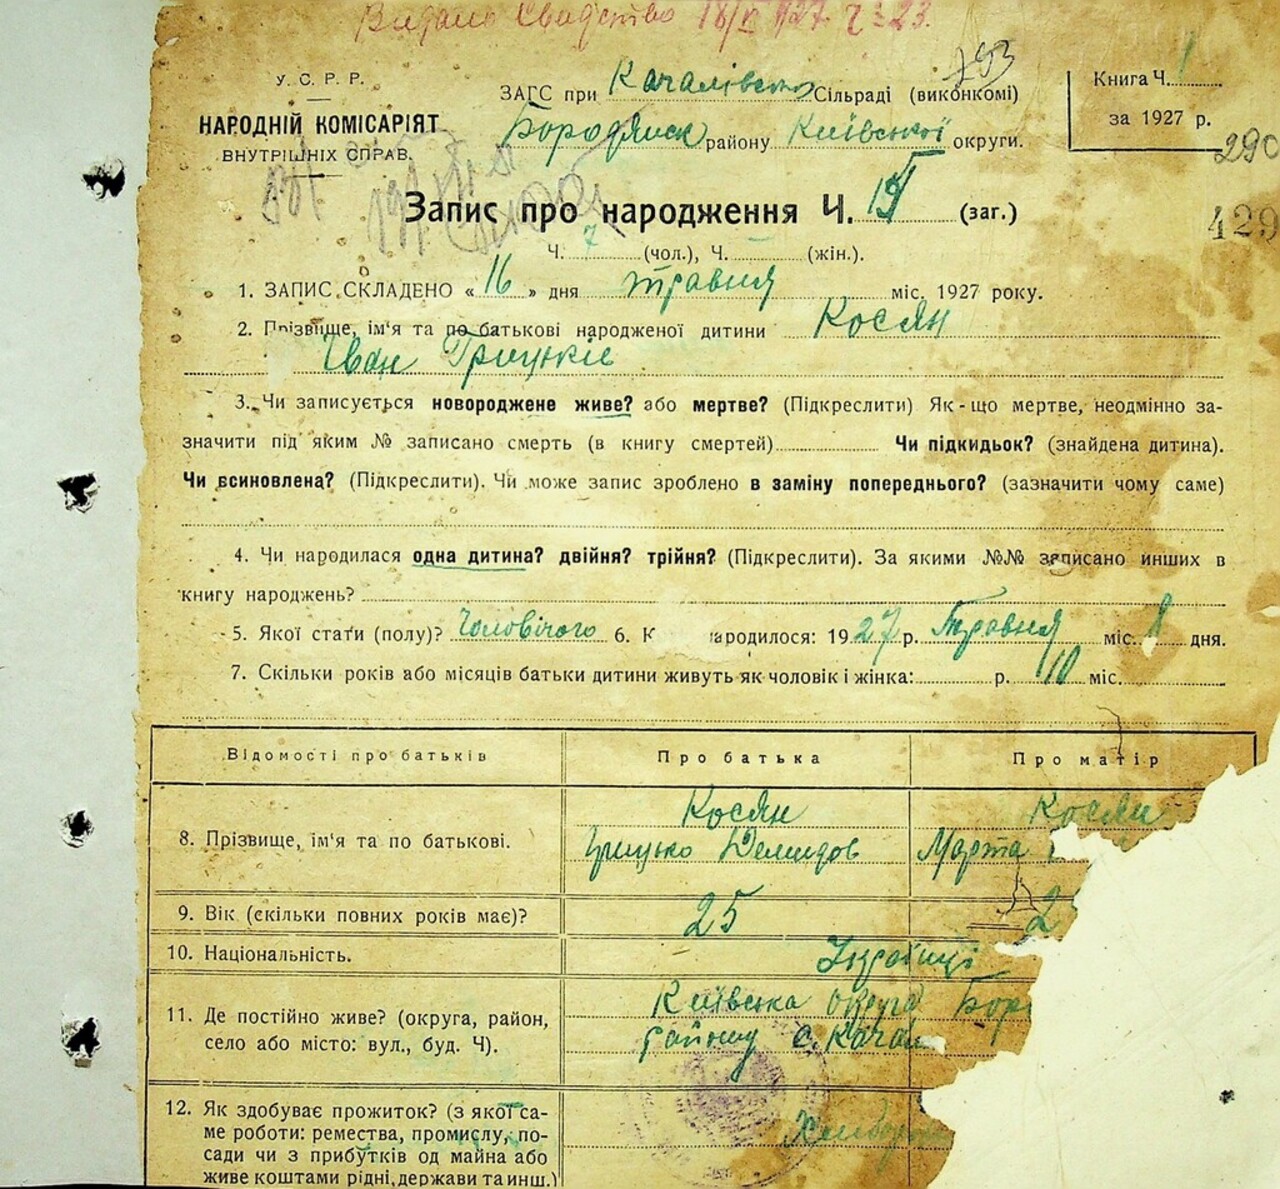 Видано Свидетство 18/V 1927 Ч 23.
793
У. С. Р. Р.
НАРОДНІЙ КОМІСАРІЯТ
ВНУТРІШНІХ СПРАВ.
ЗАГС при Качалівско Сільраді (виконкомі)
Бородянск району Київської округи.
Книга Ч. 1
за 1927 р.
290
429
Запис про народження Ч. (заг.)
Ч. 7 (чол.), Ч. (жін.).
1. ЗАПИС СКЛАДЕНО « 16 » дня травня міс. 1927 року.
2. Прізвище, ім'я та по батькові народженої дитини Косян
Іван Грицьків
3. Чи записується новороджене живе? або мертве? (Підкреслити) Як-що мертве, неодмінно за-
значити під яким № записано смерть (в книгу смертей) Чи підкидьок? (знайдена дитина).
Чи всиновлена? (Підкреслити). Чи може запис зроблено в заміну попереднього? (зазначити чому саме)
4. Чи народилася одна дитина? двійня? трійня? (Підкреслити). За якими №№ записано инших в
книгу народжень?
5. Якої стати (полу)? Чоловічого 6. К ародилося: 1927 р. Травня міс. 8 дня.
7. Скільки років або місяців батьки дитини живуть як чоловік і жінка: р. 10 міс.
Відомості про батьків Про батька Про матір
8. Прізвище, ім'я та по батькові. Косян Косян
Грицько Демидов Марта
9. Вік (скільки повних років має)? 25 2
10. Національність. Українці
11. Де постійно живе? (округа, район, Київська округа Бор
село або місто: вул., буд. Ч). району с. Качал
12. Як здобуває прожиток? (з якої са-
ме роботи: ремества, промислу, по- Хлибороб
сади чи з прибутків од майна або
живе коштами рідні, держави та инш.)